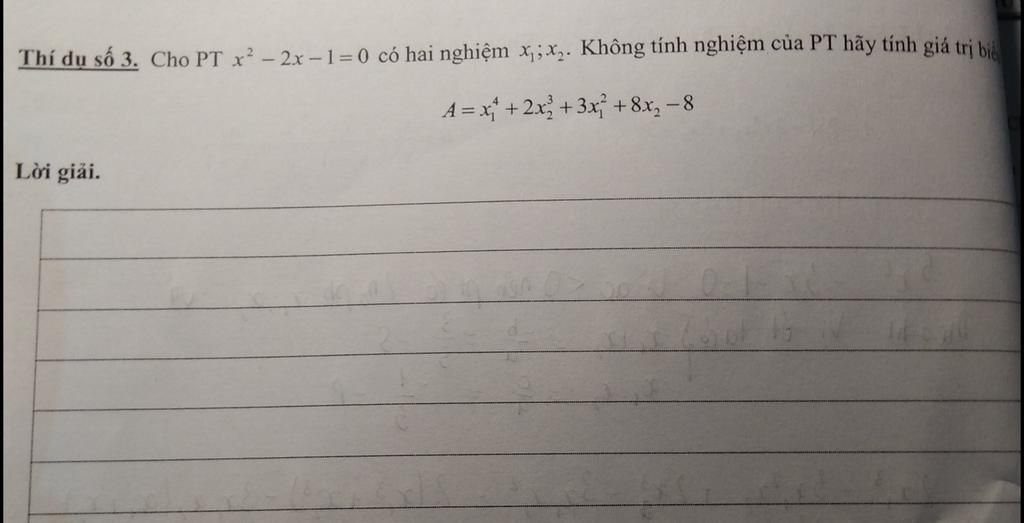 Thí dụ số 3. Cho PT x² − 2x − 1 = 0 có hai nghiệm x₁; x₂. Không tính nghiệm của PT hãy tính giá trị
A = x₁⁴ + 2x₂³ + 3x₁² + 8x₂ − 8
Lời giải.